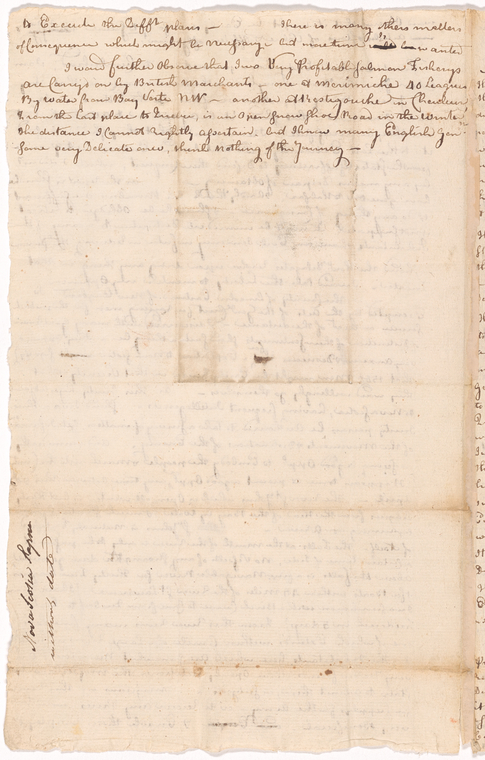 to Execute the Diffᵗ plans — There is many others matters
of Consequence which might be necessary but more time wanted
I woud further Observe that Two Very Profitable Salmon Fisherys
are Carryd on by British Merchants — one at Merimiche 40 Leagues
By water from Bay Verte NW — another at Restigouche in Cheuleur
From the last place to Quebec, is an open Snow Shoe Road in the winter
the distance I Cannot Rightly assertain, but I know many English Gen
Some very Delicate ones, think nothing of the Journey —
Nova Scotia Papers
without date